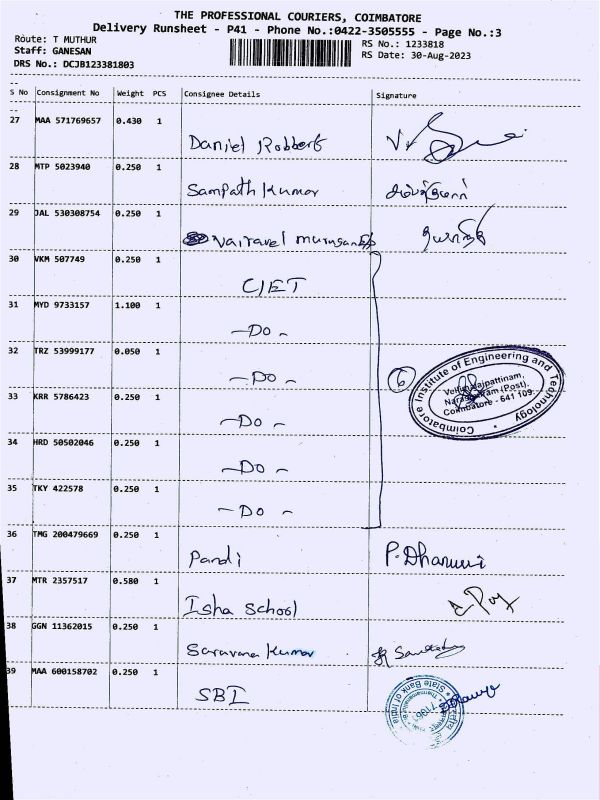 THE PROFESSIONAL COURIERS, COIMBATORE
Delivery Runsheet - P41 - Phone No.:0422-3505555 - Page No.:3
Route: T MUTHUR
RS No.: 1233818
Staff: GANESAN
RS Date: 30-Aug-2023
DRS No.: DCJB123381803
S No Consignment No Weight PCS Consignee Details Signature
27 MAA 571769657 0.430 1
Daniel Robbert
28 MTP 5023940 0.250 1
Sampath Kumar
29 JAL 530308754 0.250 1
Vairavel murugan
30 VKM 507749 0.250 1
CIET
31 MYD 9733157 1.100 1
-Do-
32 TRZ 53999177 0.050 1
-Do-
6
Coimbatore Institute of Engineering and Technology
Narasipuram (Post),
Coimbatore - 641 109
33 KRR 5786423 0.250 1
-Do-
34 HRD 50502046 0.250 1
-Do-
35 TKY 422578 0.250 1
-Do-
36 TMG 200479669 0.250 1
Pandi P. Dharuni
37 MTR 2357517 0.580 1
Isha School
38 GGN 11362015 0.250 1
Saravana Kumar
39 MAA 600158702 0.250 1
SBI
State Bank of India